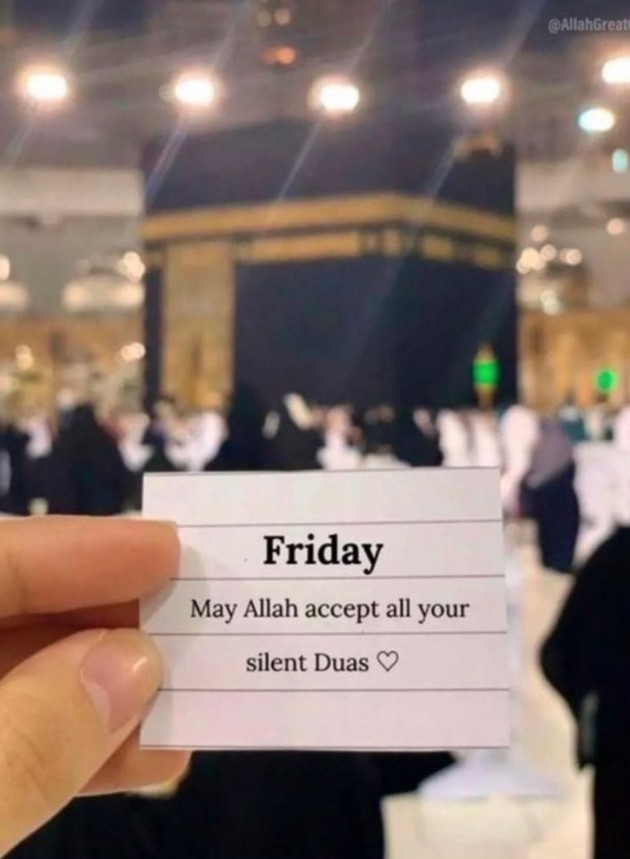 @AllahGreat
Friday
May Allah accept all your
silent Duas ♡